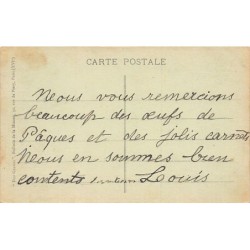 CARTE POSTALE
Nous vous remercions
beaucoup des œufs de
Pâques et des jolis carnets
Nous en sommes bien
contents Louis